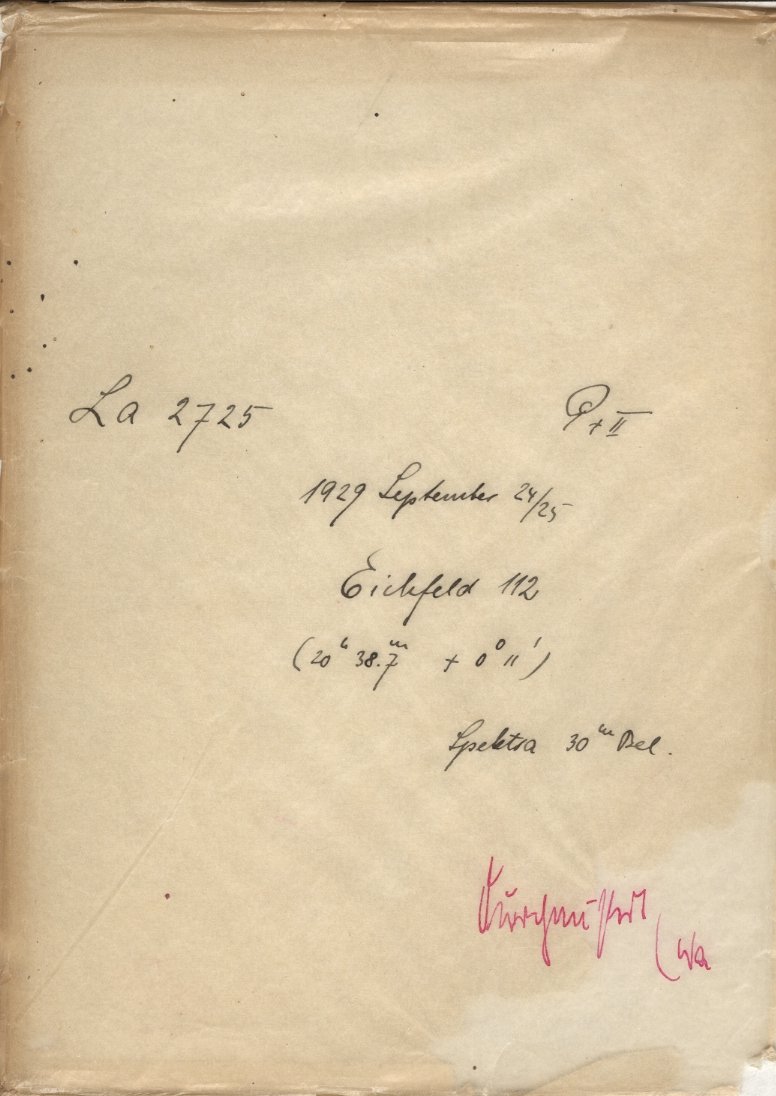 La 2725 P+II
1929 September 24/25
Eichfeld 112
(20ʰ 38.7ᵐ + 0° 11')
Spektra 30ᵐ Bel.
Durchmustert
(Wa